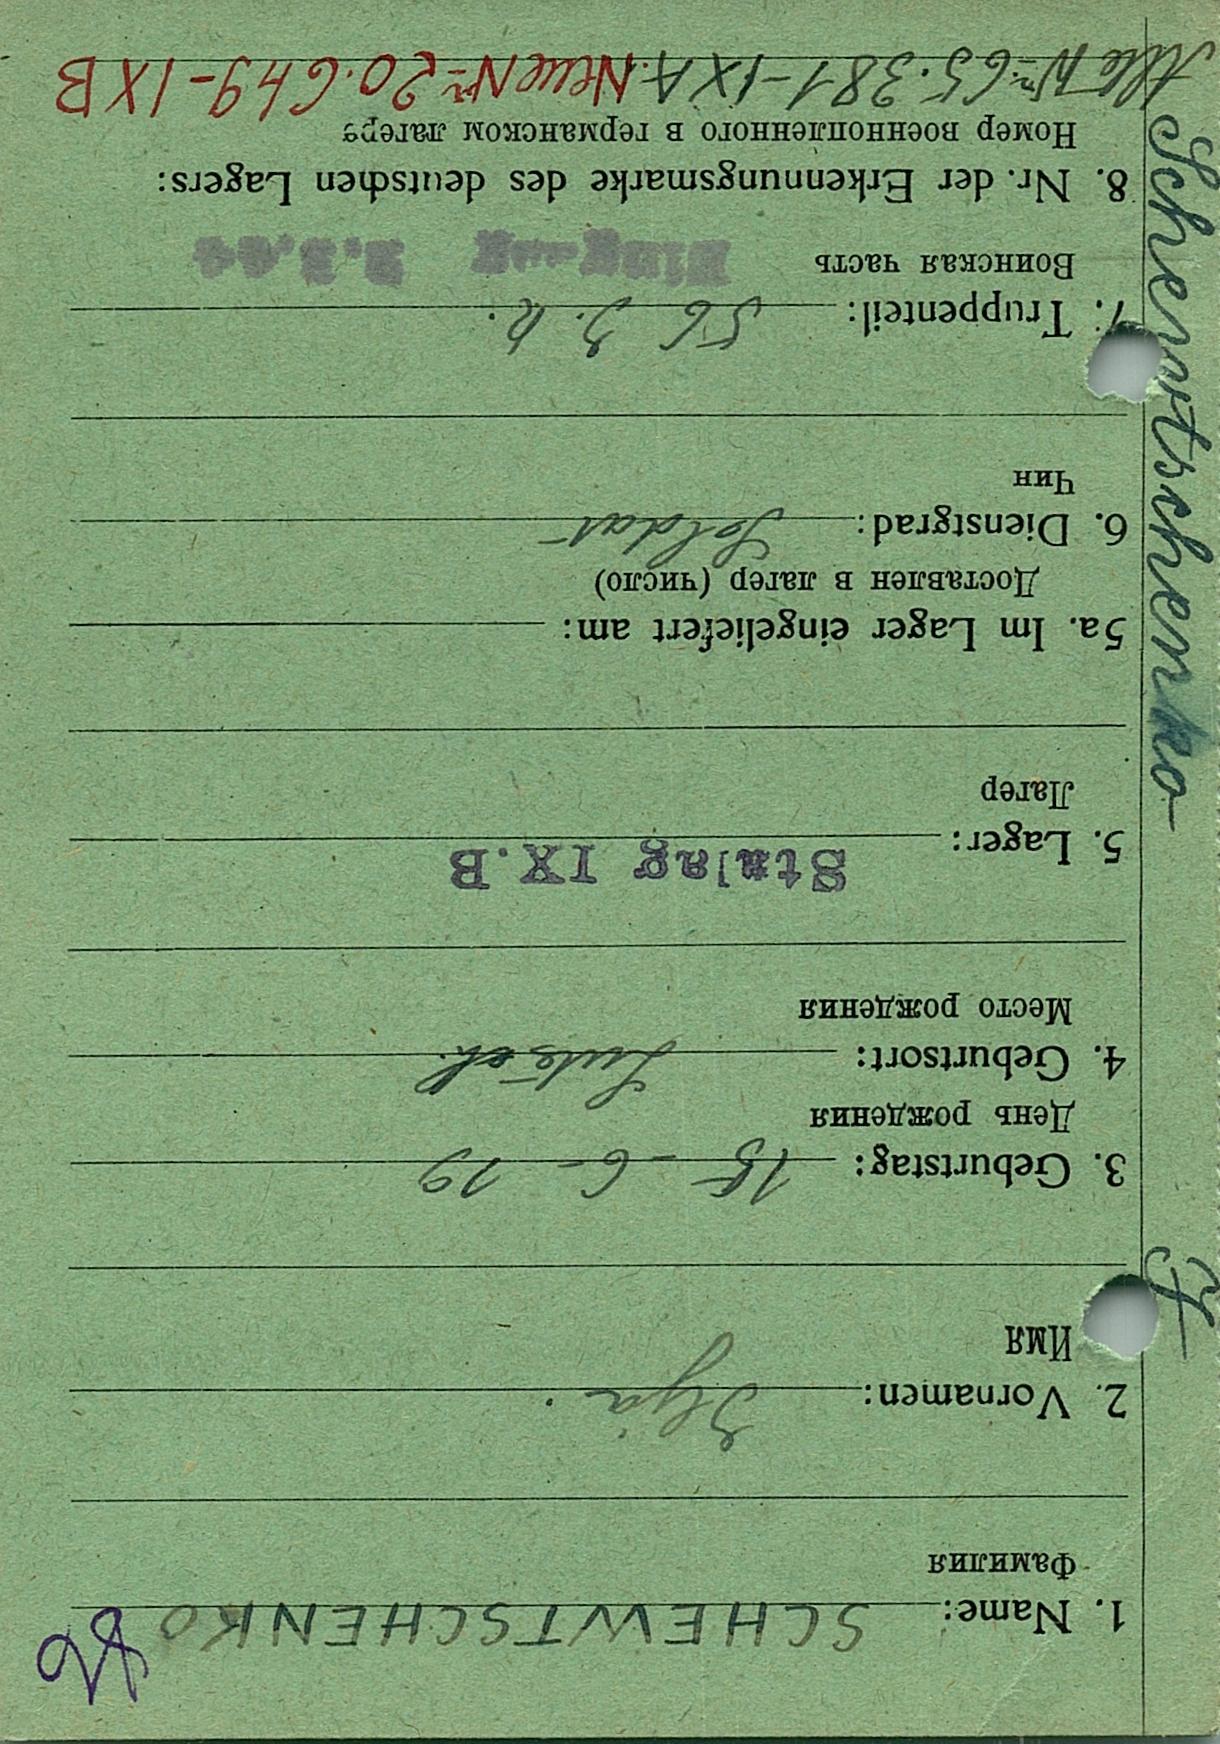 1. Name: SCHEWTSCHENKO
Фамилия
2. Vornamen: Ilja.
Имя
3. Geburtstag: 15-6-19
День рождения
4. Geburtsort:
Место рождения
5. Lager: Stalag IX.B
Лагер
5a. Im Lager eingeliefert am:
Доставлен в лагер (число)
6. Dienstgrad: Soldat
Чин
7. Truppenteil: 56
Воинская часть
8. Nr. der Erkennungsmarke des deutschen Lagers:
Номер военнопленного в германском лагере
Alte Nr. 65.381-IXA. Neue Nr. 20.649-IXB
Schewtschenko